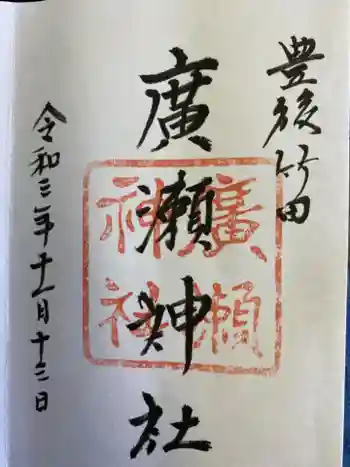 豊後竹田
廣瀬神社
廣瀬
神社
令和三年十一月十三日